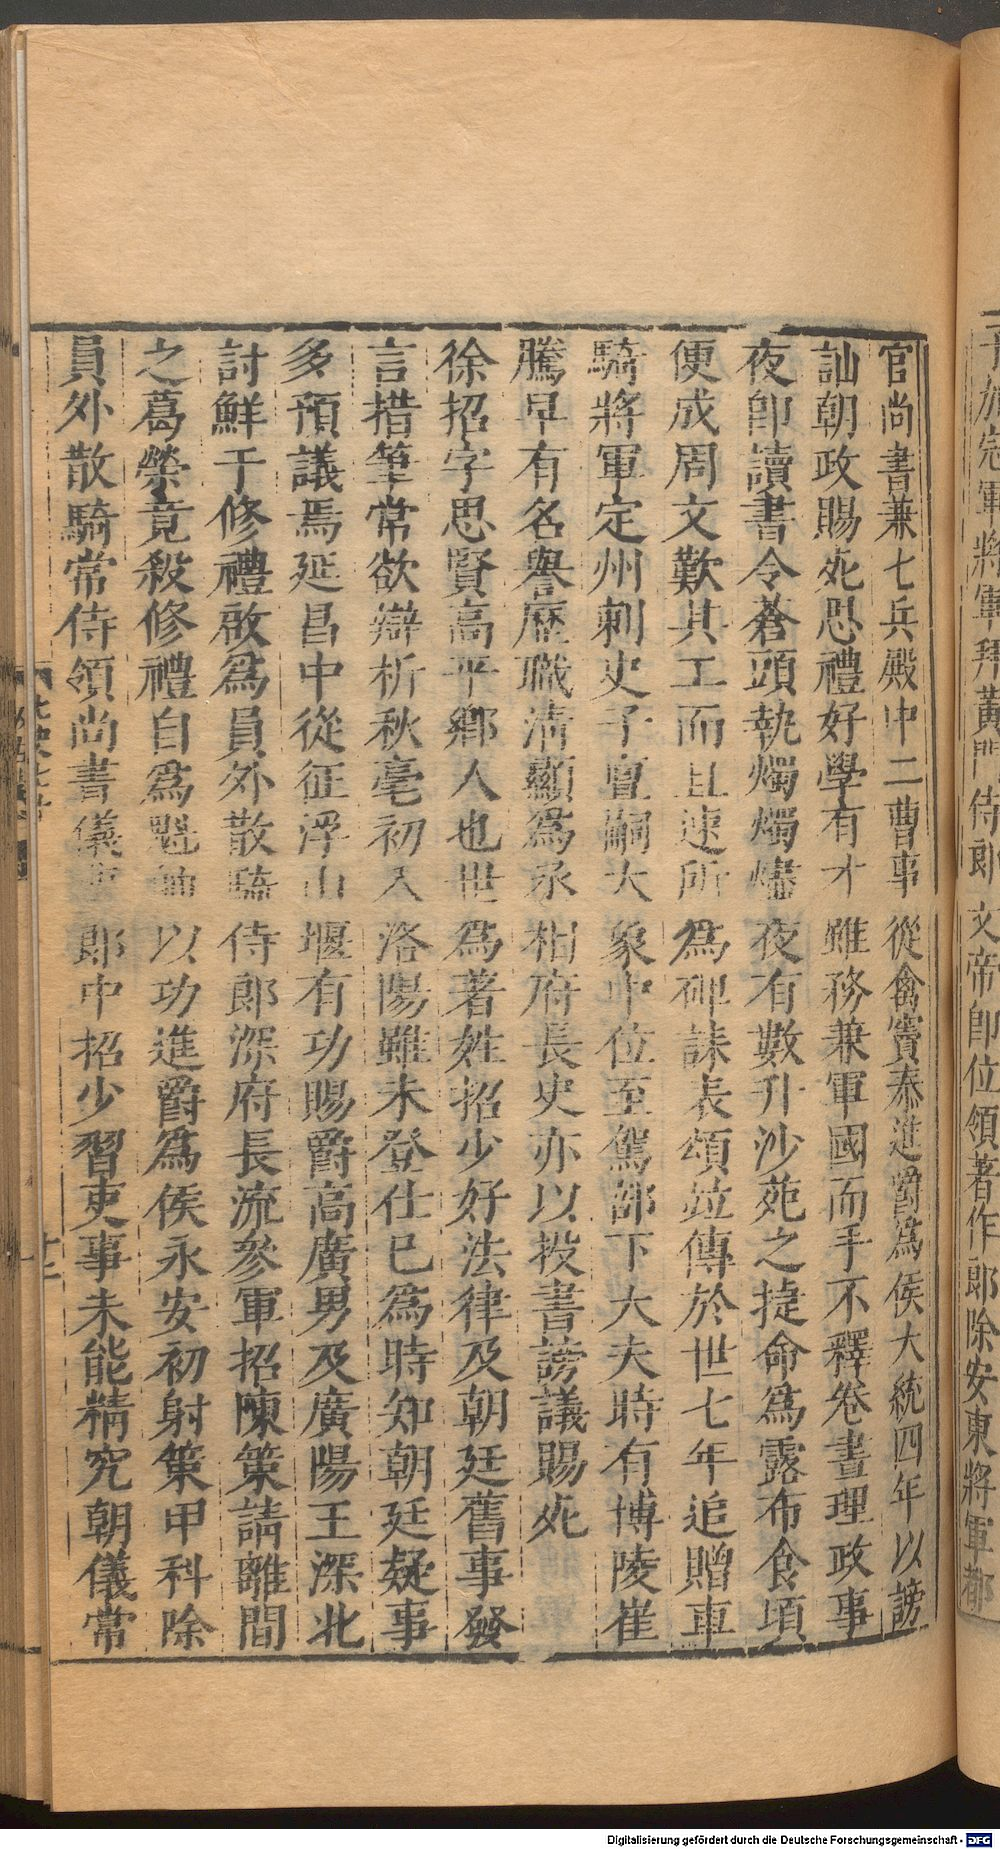 官尚書兼七兵殿中二曹事從禽竇泰進爵為侯大統四年以謗
訕朝政賜死思禮好學有才雖務兼軍國而手不釋卷晝理政事
夜卽讀書令蒼頭執燭燭燼夜有數升沙苑之捷命為露布食頃
便成周文歎其工而且速所為碑誄表頌竝傳於世七年追贈車
騎將軍定州刺史子亶嗣大象中位至駕部下大夫時有博陵崔
騰早有名譽歷職清顯為丞相府長史亦以投書謗議賜死
徐招字思賢高平鄉人也世為著姓招少好法律及朝廷舊事發
言措筆常欲辯析秋毫初入洛陽雖未登仕已為時知朝廷疑事
多預議焉延昌中從征浮山堰有功賜爵高廣男及廣陽王深北
討鮮于修禮啟為員外散騎侍郎深府長流參軍招陳策請離間
之葛榮竟殺修禮自為魁帥以功進爵為侯永安初射策甲科除
員外散騎常侍領尚書儀曹郎中招少習吏事未能精究朝儀常
軍將軍拜黃門侍郎文帝卽位領著作郎除安東將軍都
Digitalisierung gefördert durch die Deutsche Forschungsgemeinschaft - DFG